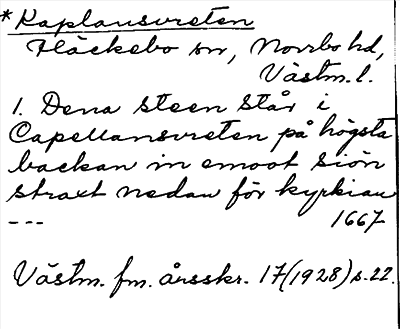 *Kaplansvreten
Fläckebo sn, Norrbo hd,
Västm. l.
1. Dena steen står i
Capellansvreten på högsta
backan in emoot siön
straxt nedan för kyrkian
--- 1667
Västm. fm. årsskr. 17(1928)s.22.